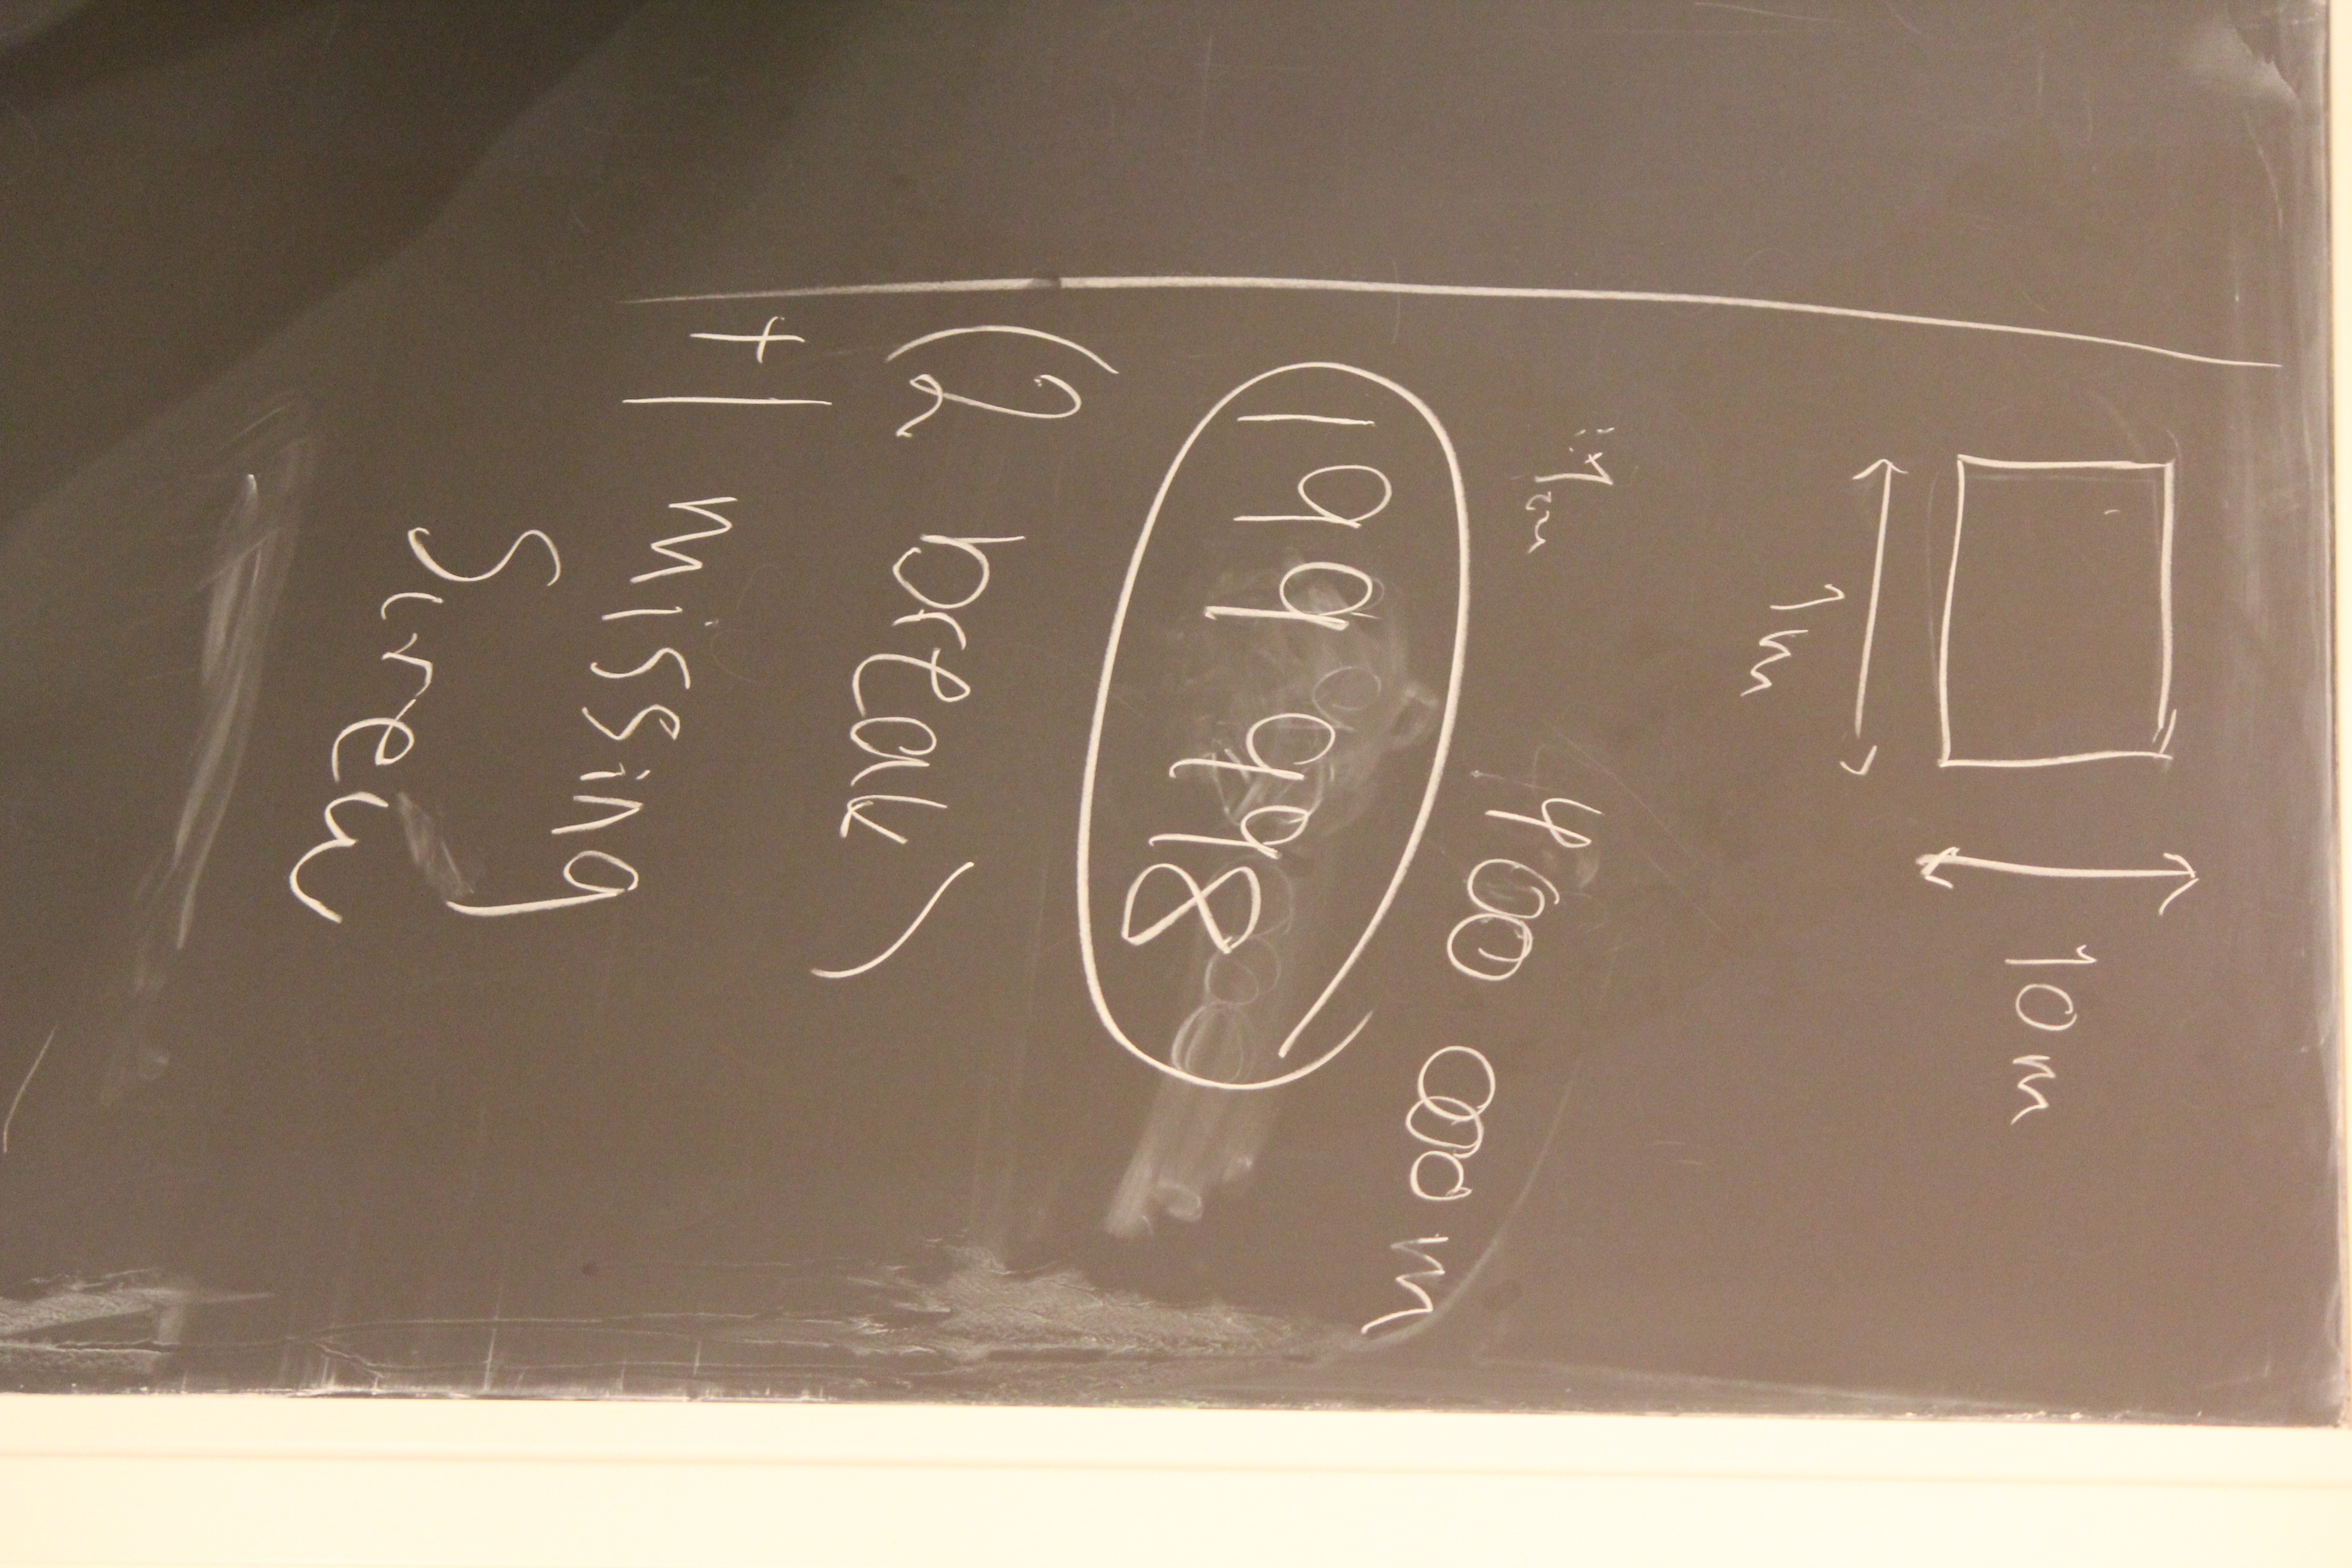 10 m
1 m
400 000 m
199 998
(2 break)
+1 missing
Screw